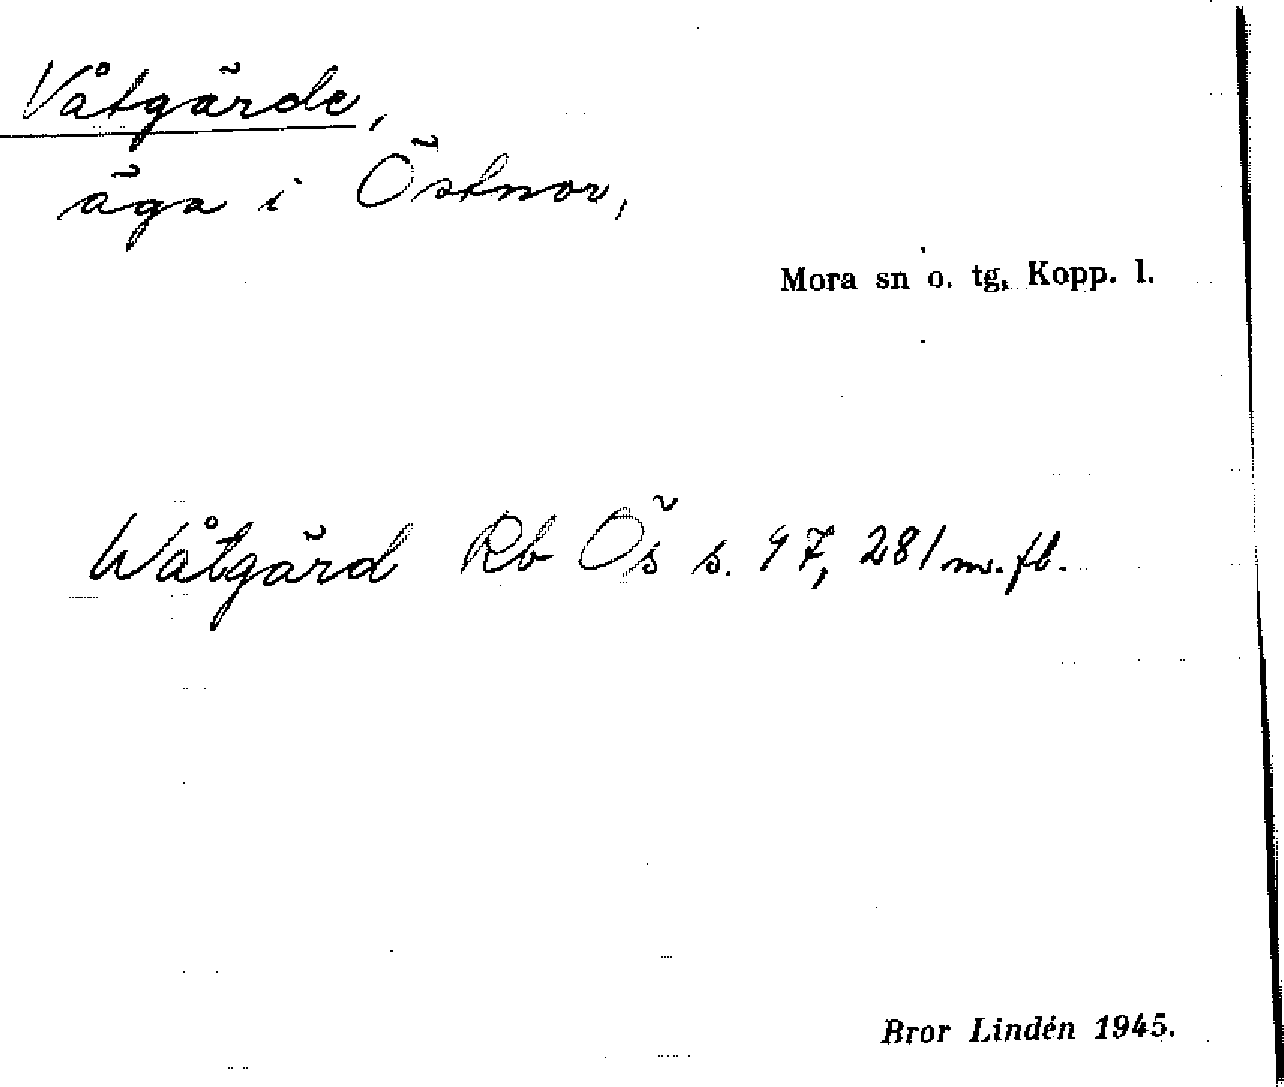 Våtgärde,
äga i Östnor,
Mora sn o. tg, Kopp. l.
Wåtgärd Rb Ös s. 97, 281 m. fl.
Bror Lindén 1945.